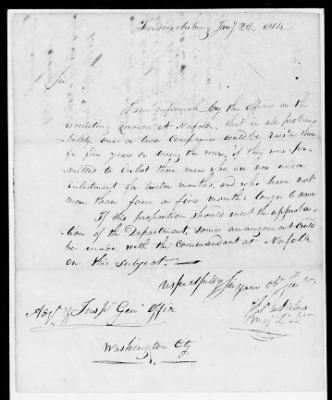 Fredericksburg Jany 26, 1814
Sir
I am informed by the Officer on the
recruiting service at Norfolk, that in all proba-
bility one or two Companies could be rais'd there
for five years or during the war, if they was per-
mitted to enlist those men who are now under
Enlistment for twelve months, and who have not
more than four or five months longer to serve
If this proposition should meet the approba-
tion of the Department, some arrangement could
be made with the Commandant at Norfolk
on this subject.
respectfully Your
Adjt & Inspr Genl Office
Washington City